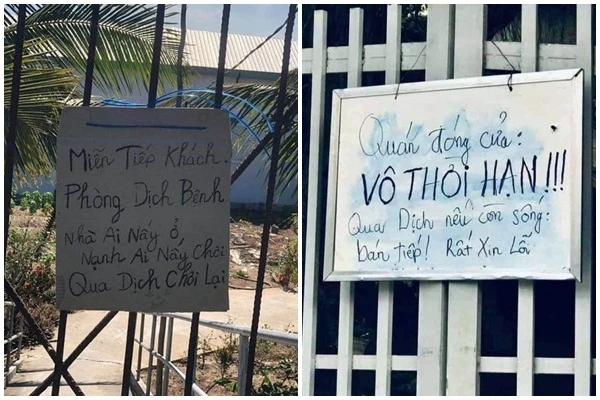 Miễn Tiếp Khách.
Phòng Dịch Bệnh
Nhà Ai Nấy Ở,
Nạnh Ai Nấy Chơi
Qua Dịch Chơi Lại
Quán đóng cửa:
VÔ THỜI HẠN!!!
Qua Dịch nếu còn sống:
bán tiếp! Rất Xin Lỗi